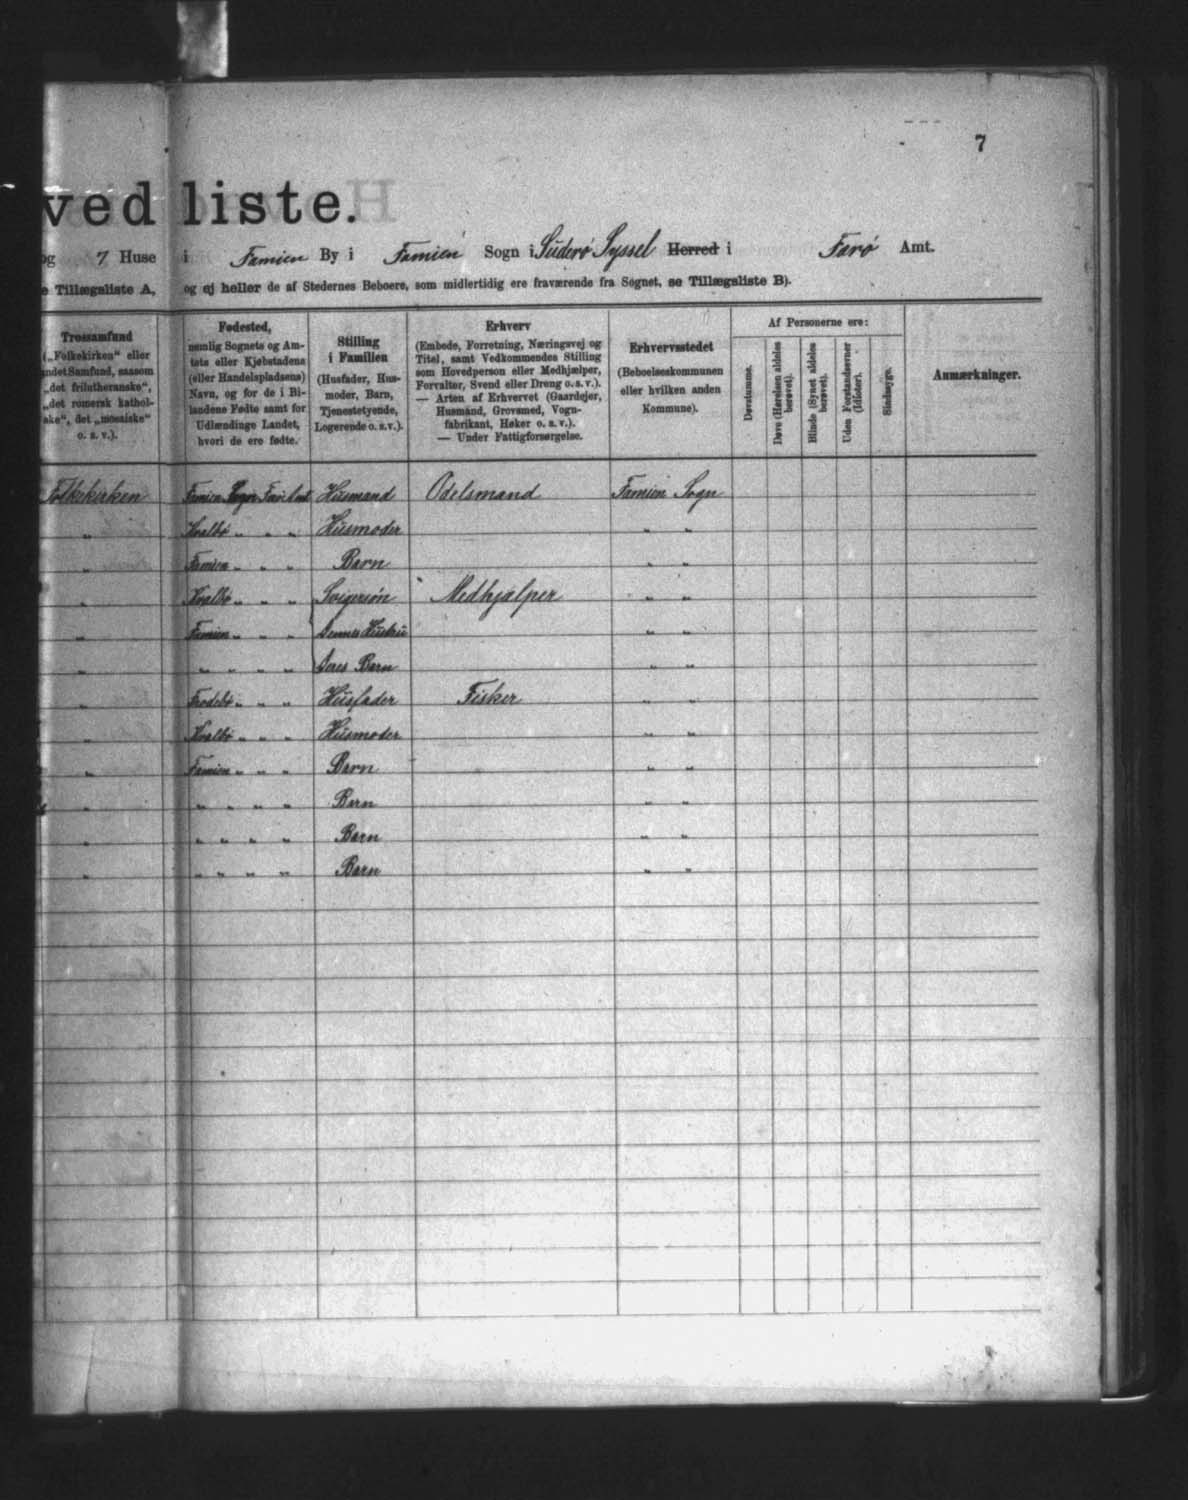 7
ved liste.
og 7 Huse i Famien By i Famien Sogn i Suderø Syssel Herred i Færø Amt.
e Tillægsliste A, og ej heller de af Stedernes Beboere, som midlertidig ere fraværende fra Sognet, se Tillægsliste B).
Trossamfund
(„Folkekirken“ eller
andet Samfund, saasom
„det frilutheranske“,
„det romersk kathol-
ske“, det „mosaiske“
o. s. v.).
Fødested,
nemlig Sognets og Am-
tets eller Kjøbstadens
(eller Handelspladsens)
Navn, og for de i Bi-
landene Fødte samt for
Udlændinge Landet,
hvori de ere fødte.
Stilling
i Familien
(Husfader, Hus-
moder, Barn,
Tjenestetyende,
Logerende o. s. v.).
Erhverv
(Embede, Forretning, Næringsvej og
Titel, samt Vedkommendes Stilling
som Hovedperson eller Medhjælper,
Forvalter, Svend eller Dreng o. s. v.).
— Arten af Erhvervet (Gaardejer,
Husmand, Grovsmed, Vogn-
fabrikant, Høker o. s. v.).
— Under Fattigforsørgelse.
Erhvervsstedet
(Beboelseskommunen
eller hvilken anden
Kommune).
Af Personerne ere:
Døvstumme.
Døve (Hørelsen aldeles
berøvet).
Blinde (Synet aldeles
berøvet).
Uden Forstandsevner
(Idioter).
Sindssyge.
Anmærkninger.
Folkekirken Famien Sogn Færø Amt Husmand Odelsmand Famien Sogn
„ Hvalbø „ „ „ Husmoder „ „
„ Famien „ „ „ Barn „ „
„ Hvalbø „ „ „ Svigersøn Medhjælper „ „
„ Famien „ „ „ Dennes Hustru „ „
„ „ „ „ „ Deres Barn „ „
„ Frodebø „ „ „ Husfader Fisker „ „
„ Hvalbø „ „ „ Husmoder „ „
„ Famien „ „ „ Barn „ „
„ „ „ „ „ Barn „ „
„ „ „ „ „ Barn „ „
„ „ „ „ „ Barn „ „